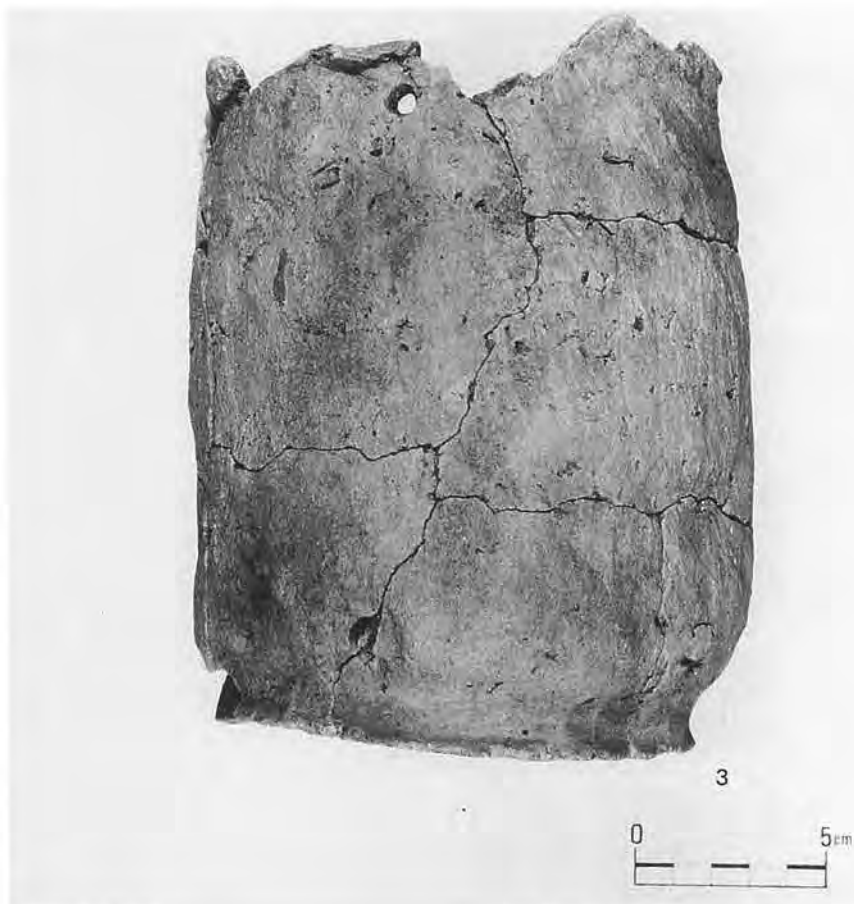 3
0 5cm